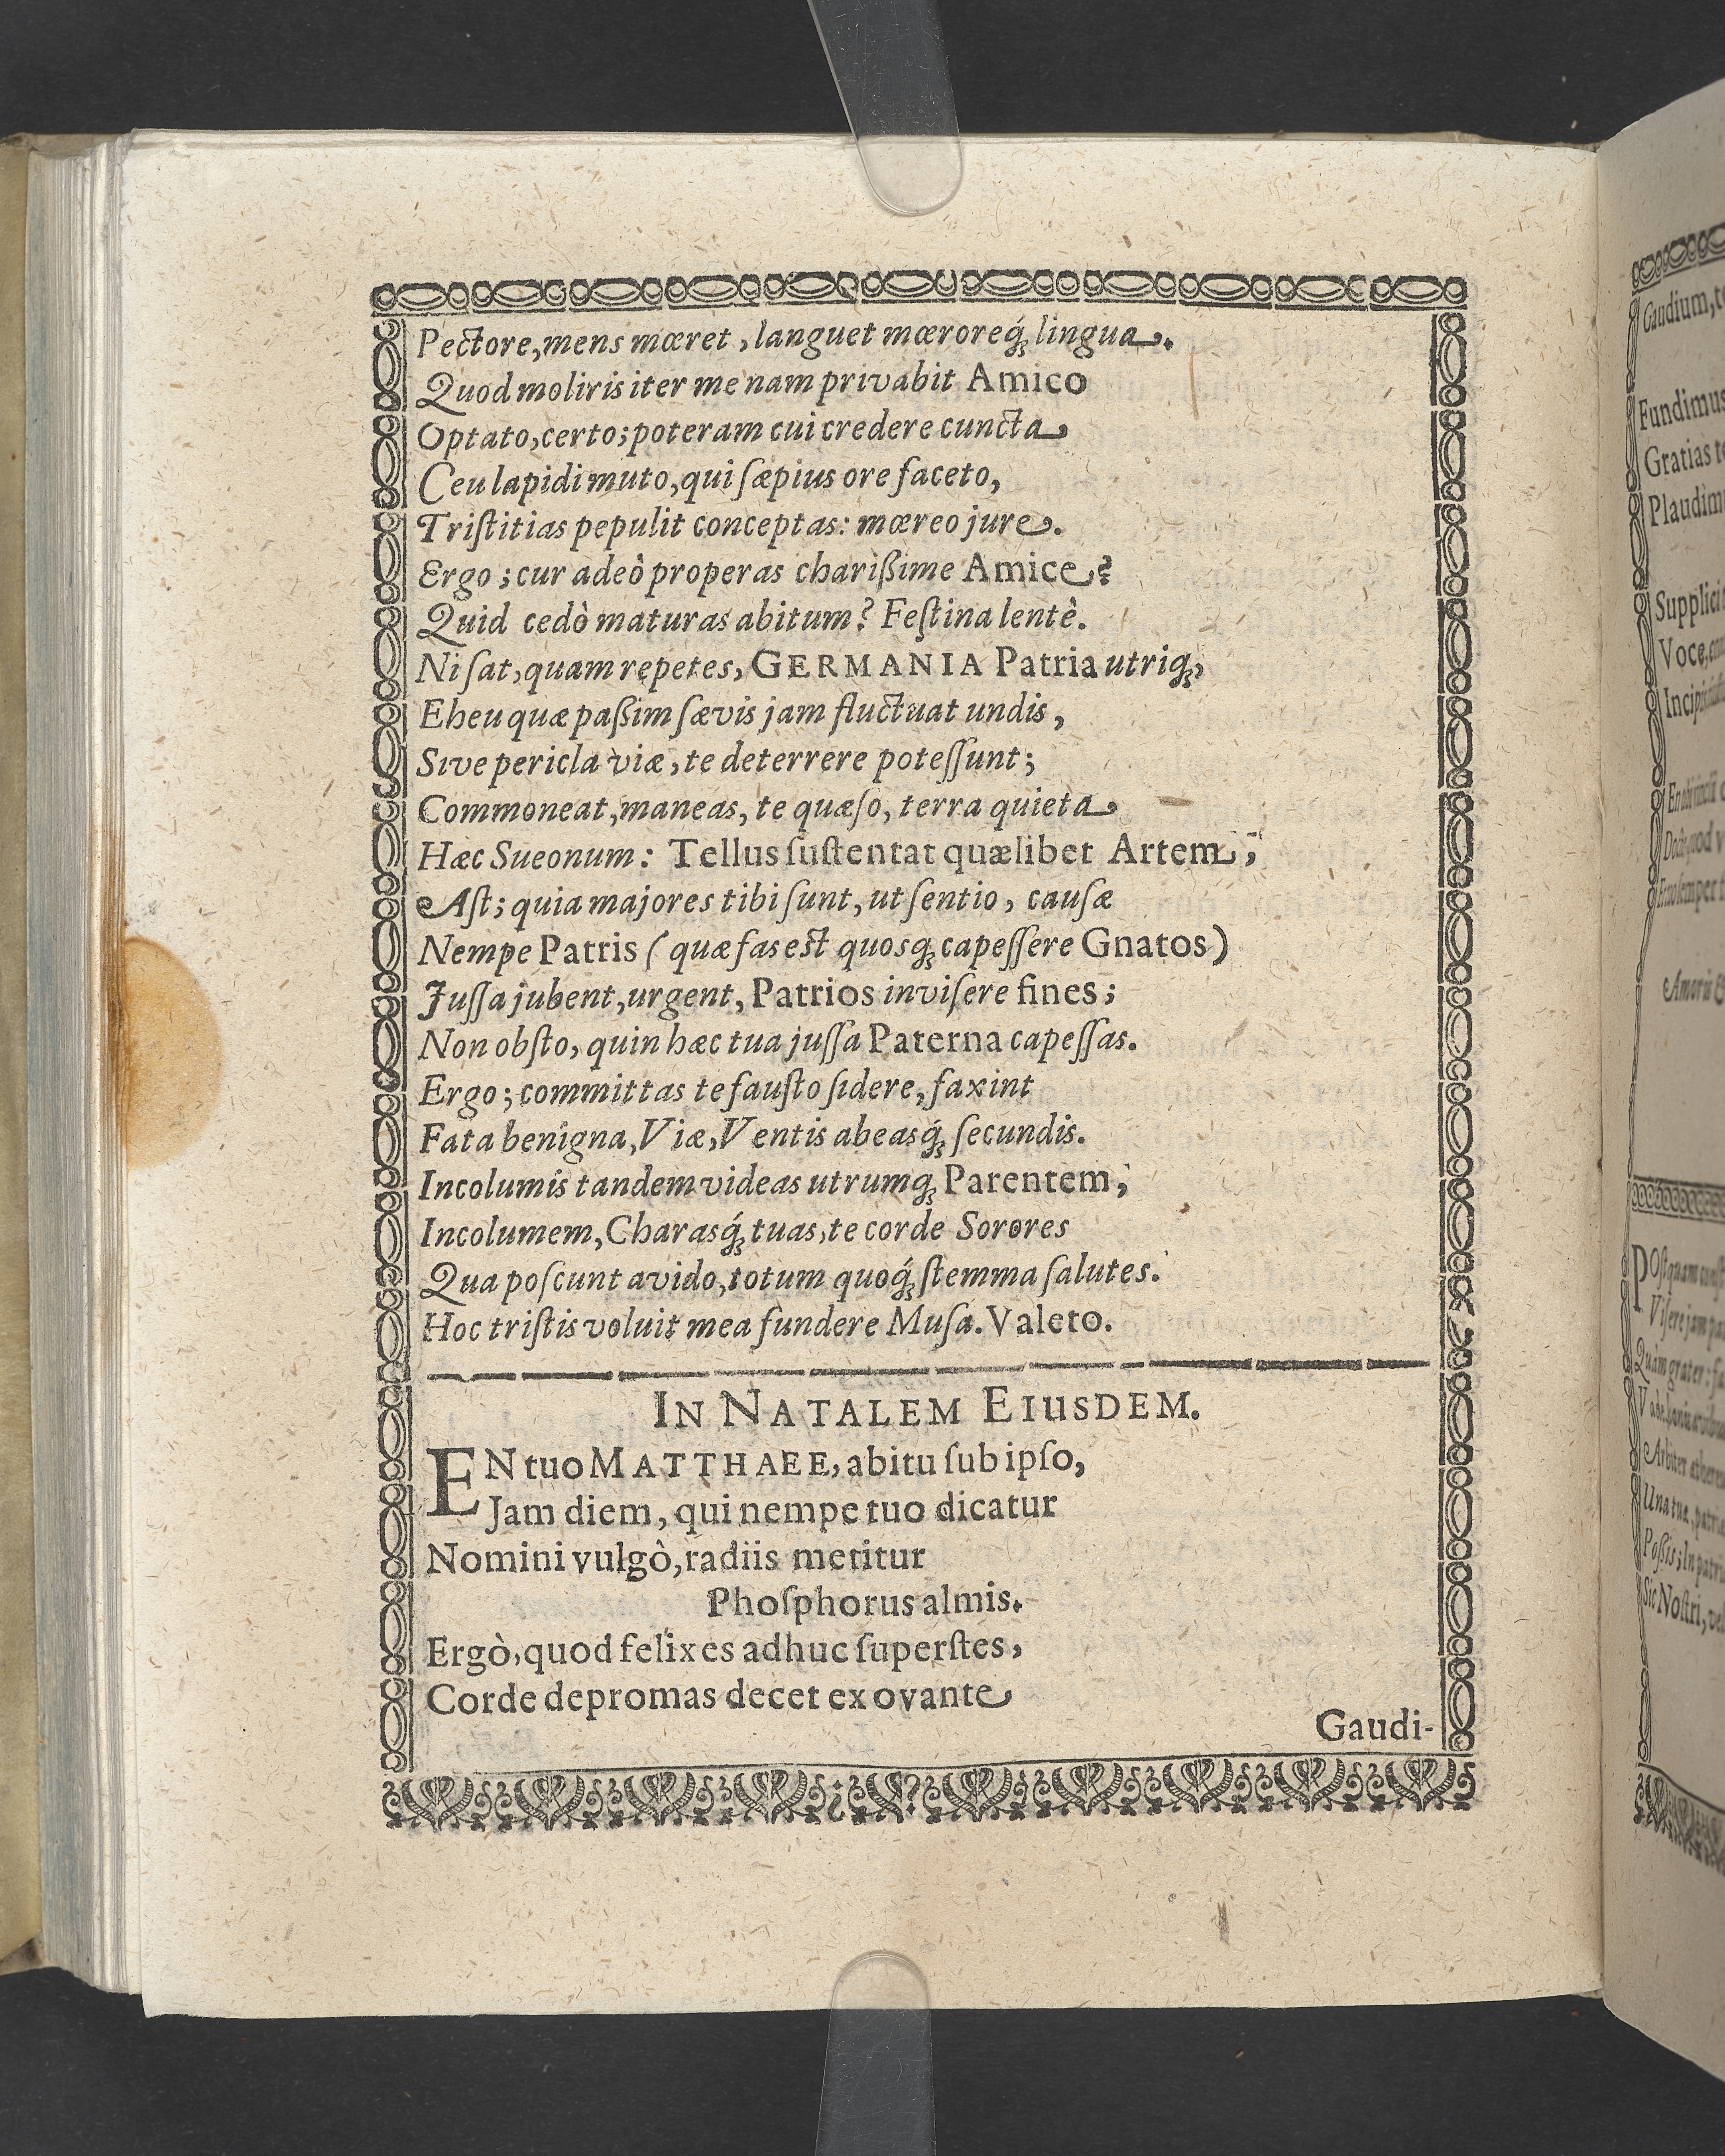 Pectore, mens mœret, languet mœroreq́ꝫ lingua.
Quod moliris iter me nam privabit Amico
Optato, certo; poteram cui credere cuncta
Ceu lapidi muto, qui ſæpius ore faceto,
Triſtitias pepulit conceptas: mœreo jure.
Ergo; cur adeò properas charißime Amice?
Quid cedò maturas abitum? Feſtina lentè.
Ni ſat, quam repetes, GERMANIA Patria utriqꝫ,
Eheu quæ paßim ſævis jam fluctuat undis,
Sive pericla viæ, te deterrere poteſſunt;
Commoneat, maneas, te quæſo, terra quieta
Hæc Sueonum: Tellus ſuſtentat quælibet Artem;
Aſt; quia majores tibi ſunt, ut ſentio, cauſæ
Nempe Patris (quæ fas est quosqꝫ capeſſere Gnatos)
Juſſa jubent, urgent, Patrios inviſere fines;
Non obſto, quin hæc tua juſſa Paterna capeſſas.
Ergo; committas te fauſto ſidere, faxint
Fata benigna, Viæ, Ventis abeasq́ꝫ ſecundis.
Incolumis tandem videas utrumqꝫ Parentem;
Incolumem, Charasq́ꝫ tuas, te corde Sorores
Qua poſcunt avido, totum quoq́ꝫ ſtemma ſalutes.
Hoc triſtis voluit mea fundere Muſa. Valeto.
IN NATALEM EIUSDEM.
EN tuo MATTHAEE, abitu ſub ipſo,
Jam diem, qui nempe tuo dicatur
Nomini vulgò, radiis metitur
Phoſphorus almis.
Ergò, quod felix es adhuc ſuperſtes,
Corde depromas decet ex ovante
Gaudi-
Gaudium,
Fundimus
Gratias
Supplici
Voce,